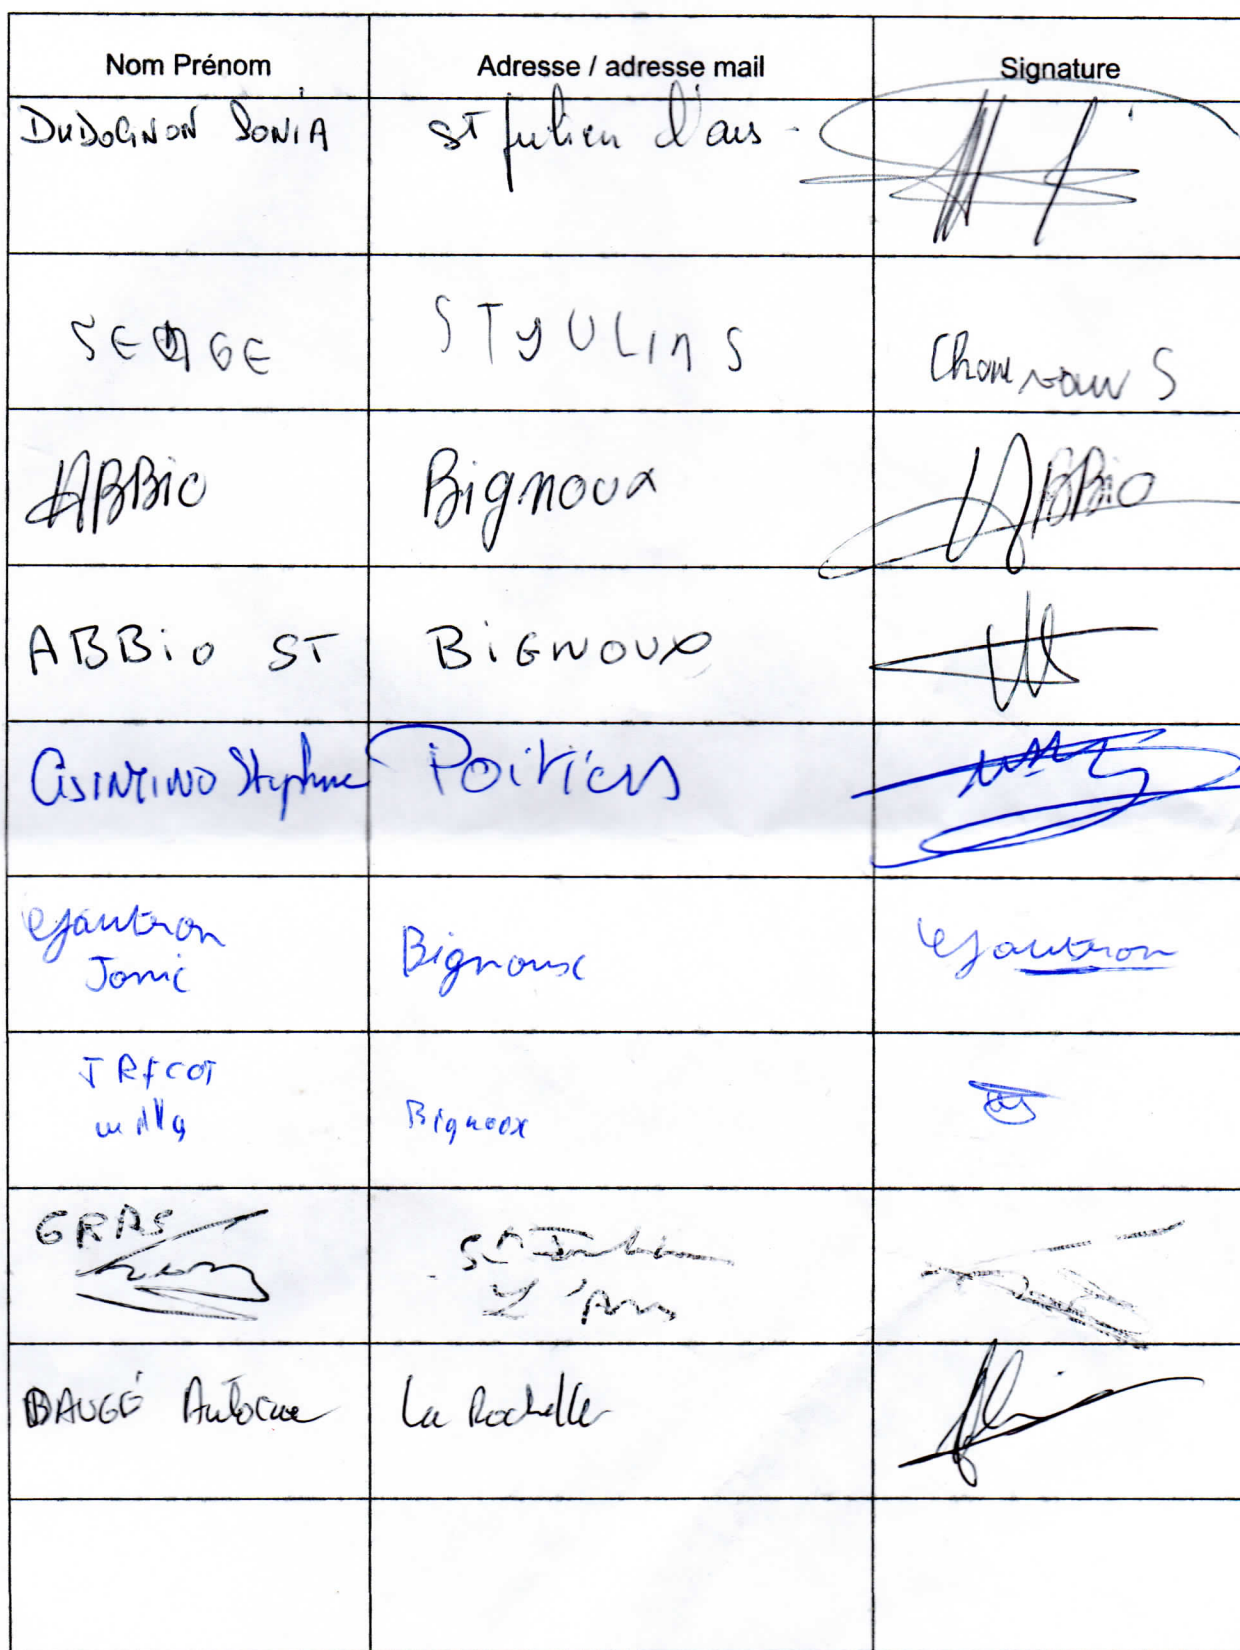 Nom Prénom Adresse / adresse mail Signature
DUDOGNON SONIA St Julien l'ars
SERGE STJULINS
ABBiO Bignoux ABBiO
ABBiO ST BiGNOUX
Stéphane Poitiers
Gautron Bignoux Gautron
Janic
TRICOT
willy Bignoux
GRAS St Julien
L'Ars
BAUGÉ Antoine La Rochelle